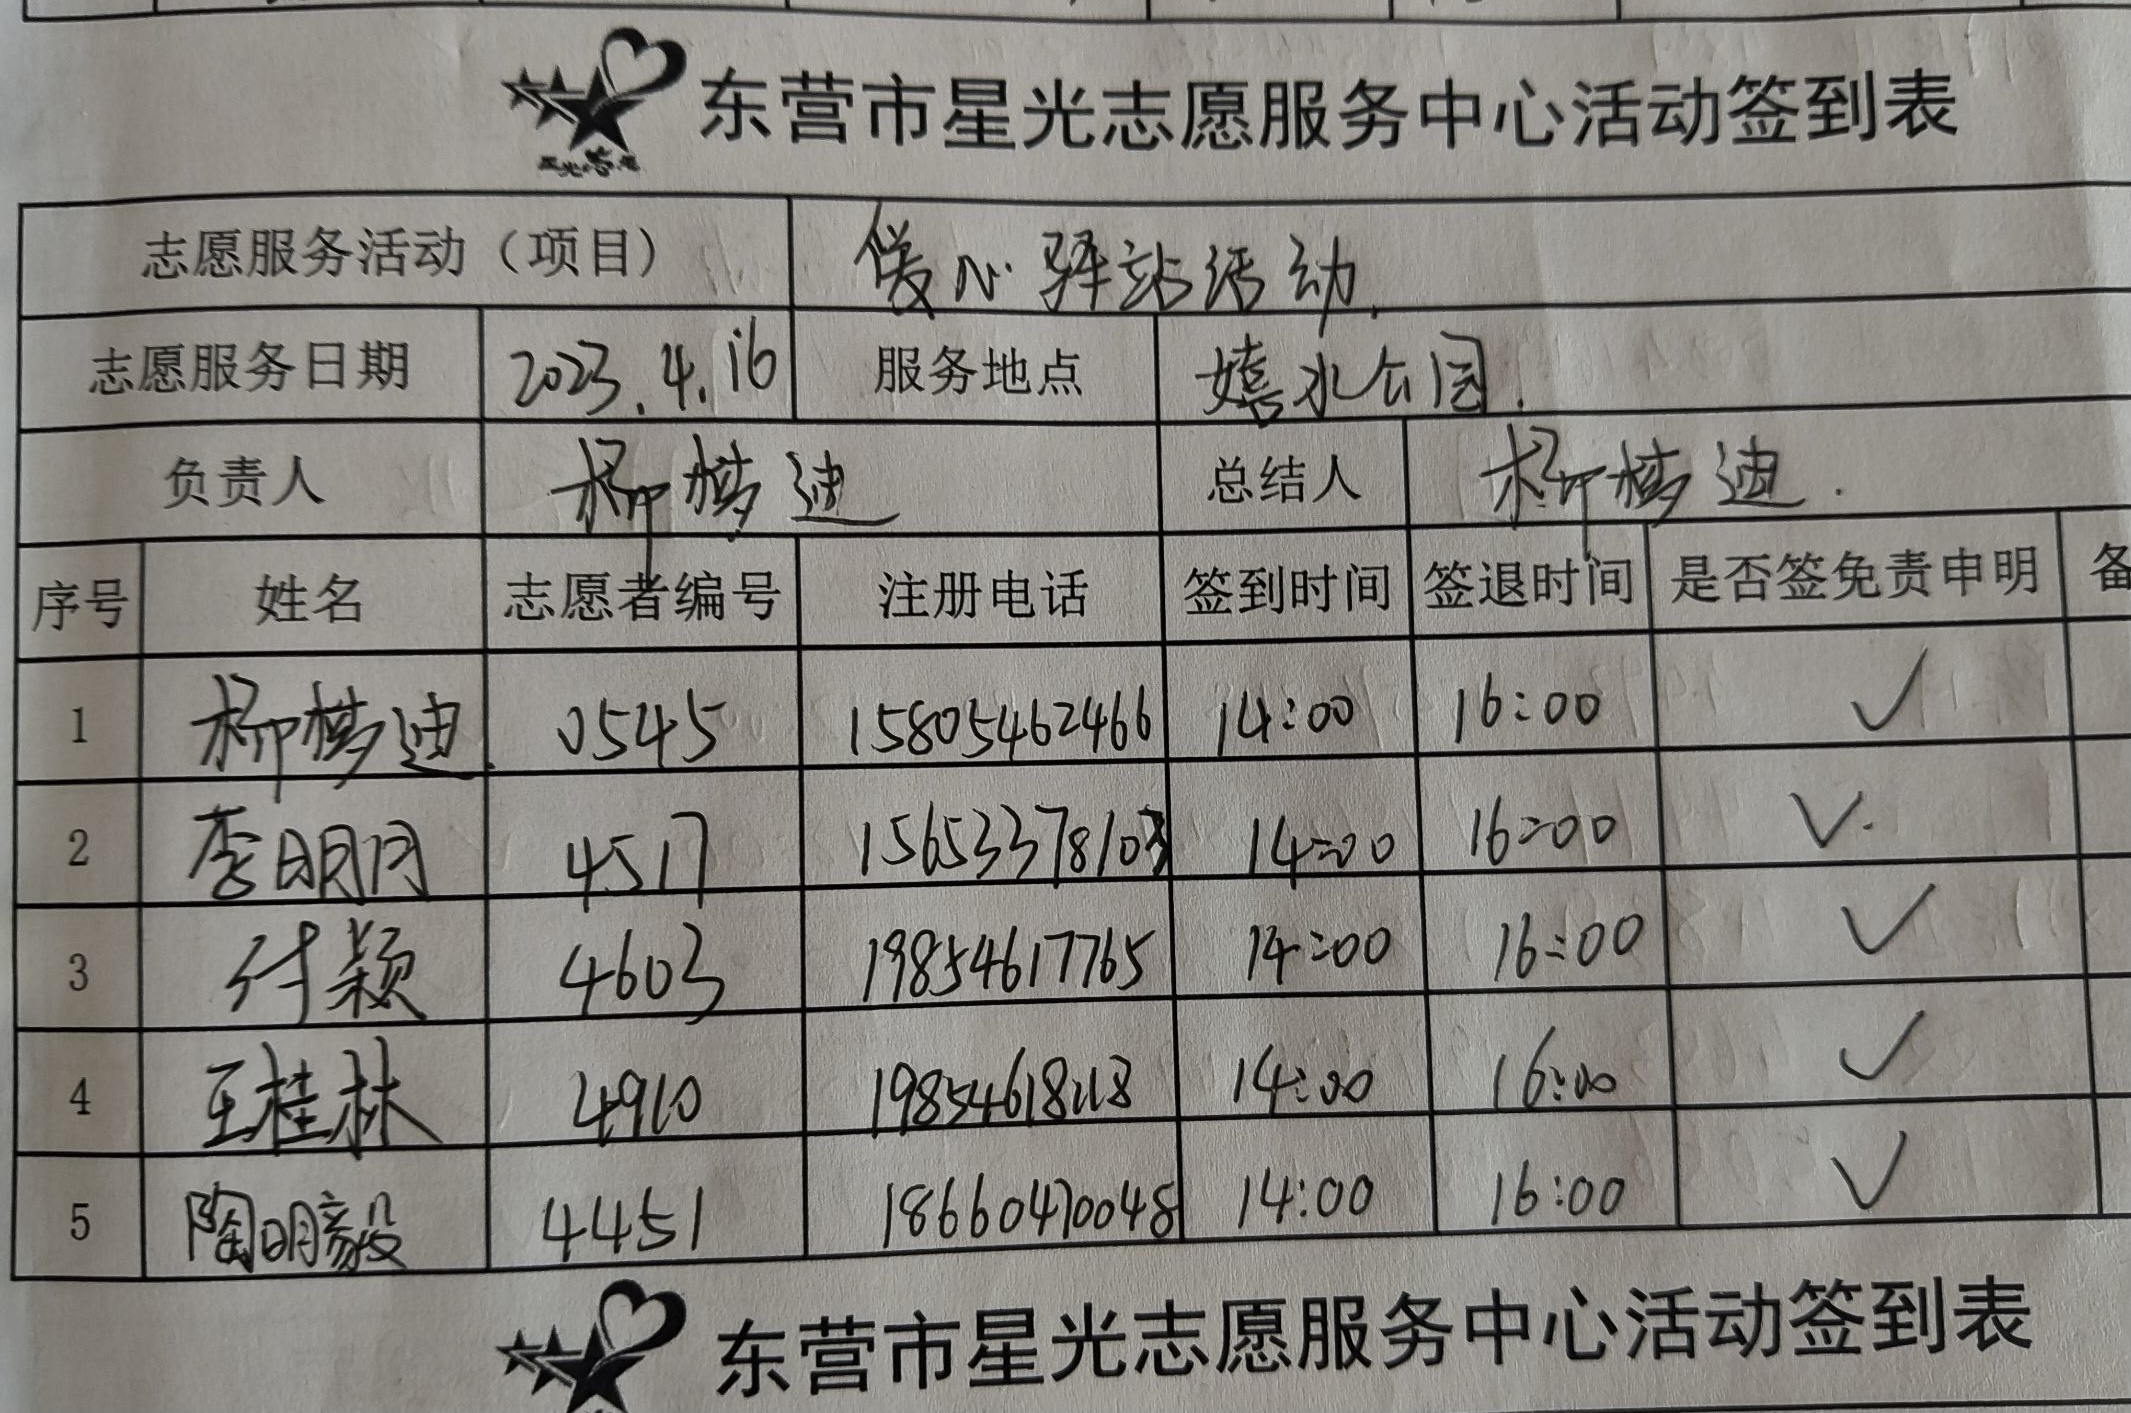 东营市星光志愿服务中心活动签到表
星光志愿
志愿服务活动（项目） 暖心驿站活动
志愿服务日期 2023.4.16 服务地点 嬉水公园
负责人 柳梦迪 总结人 柳梦迪
序号 姓名 志愿者编号 注册电话 签到时间 签退时间 是否签免责申明 备
1 柳梦迪 0545 15805462466 14:00 16:00 ✓
2 李明月 4517 15653378103 14:00 16:00 ✓
3 付颖 4603 19854617765 14:00 16:00 ✓
4 王桂林 4910 14:00 16:00 ✓
5 陶明毅 4451 18660470048 14:00 16:00 ✓
东营市星光志愿服务中心活动签到表